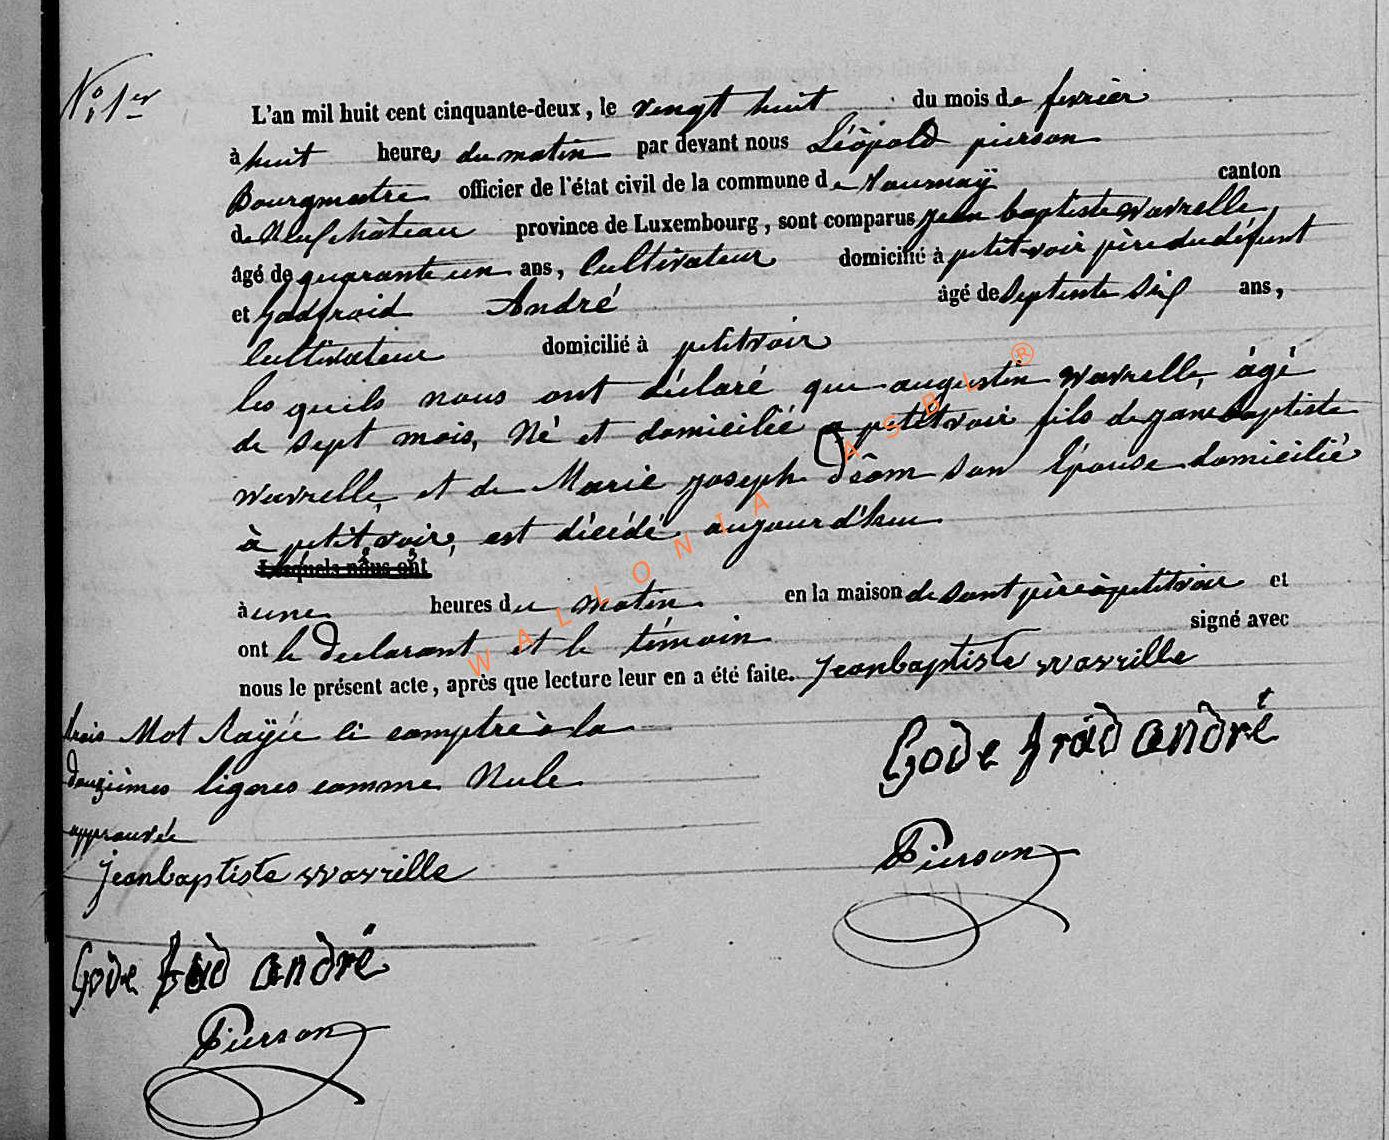 N° 1er
L'an mil huit cent cinquante-deux, le vengt huit du mois de fevrier
à huit heures du matin par devant nous Léopold pierson
Bourgmestre officier de l'état civil de la commune de Tournaÿ canton
de Neufchâteau province de Luxembourg, sont comparus jean baptiste wavrelle,
âgé de quarante un ans, Cultivateur domicilié à petit-voir père du défunt
et Godfroid André âgé de septente six ans,
Cultivateur domicilié à petitvoir
les quils nous ont déclaré que augustin wavrelle, âgé
de sept mois, Né et domicilié a petitvoir fils de jane baptiste
wavrelle, et de Marie joseph Dsôm son Épouse domicilié
à petit voir, est décédé aujourd'hui
Lesquels nous ont
à une heures du matin en la maison de sont père à petitvoir et
ont le declarant et le témoin signé avec
nous le présent acte, après que lecture leur en a été faite. Jeanbaptiste wavrille
trois Mot Raÿée li comptre à la
douzièmes lignes comme Nule
approuvée
Jeanbaptiste wavrille
Gode frad andré
Pierson
Gode frad andré
Pierson
WALLONIA ASBL ®